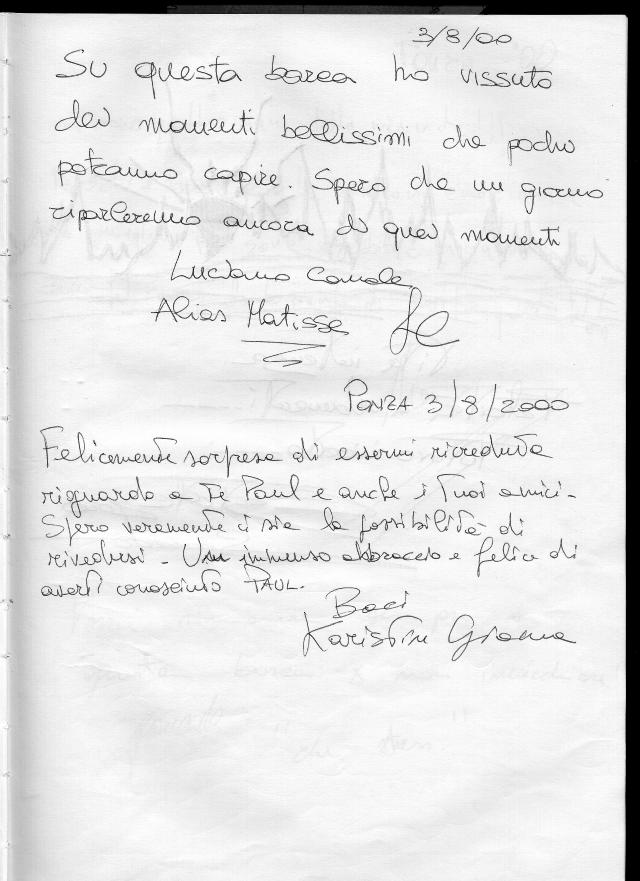 3/8/00
Su questa barca ho vissuto
dei momenti bellissimi che pochi
potranno capire. Spero che un giorno
riparleremo ancora di quei momenti
Luciano Canale
Alias Matisse
Ponza 3/8/2000
Felicemente sorpresa di essermi ricreduta
riguardo a Te Paul e anche i Tuoi amici-
Spero veramente ci sia la possibilità di
rivedersi - Un immenso abbraccio e felice di
averti conosciuto PAUL.
Baci
Karistin Gianna